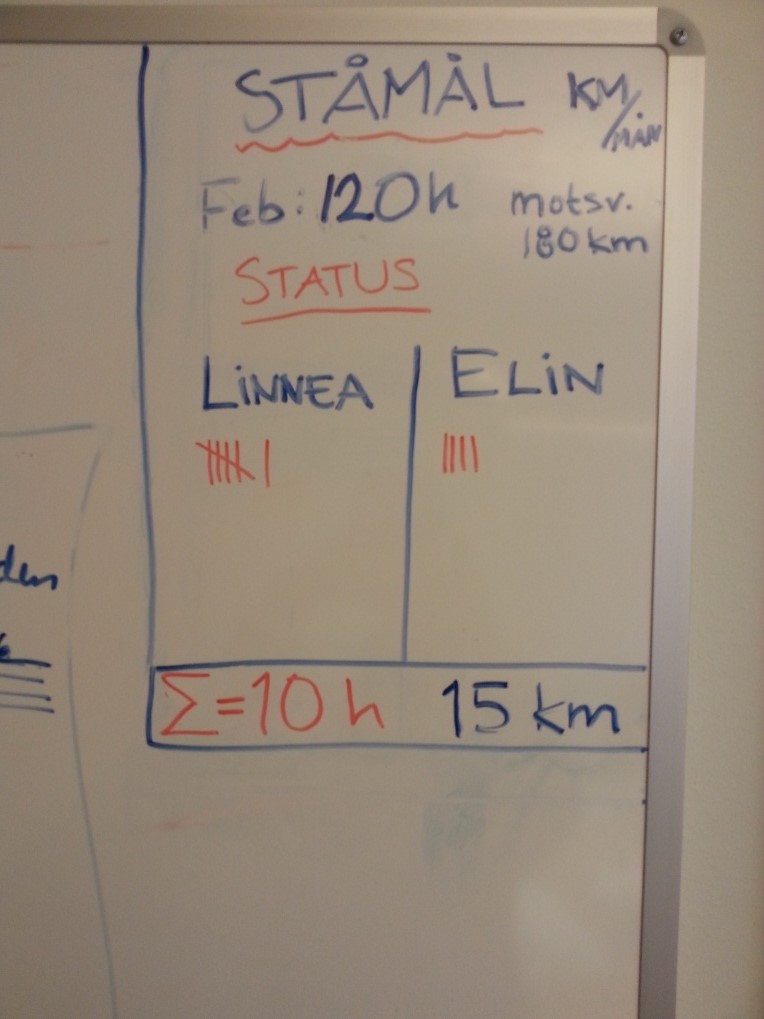 STÅMÅL KM/MÅN
Feb: 120h motsv.
180 km
STATUS
LiNNEA ELiN
Σ=10 h 15 km
den